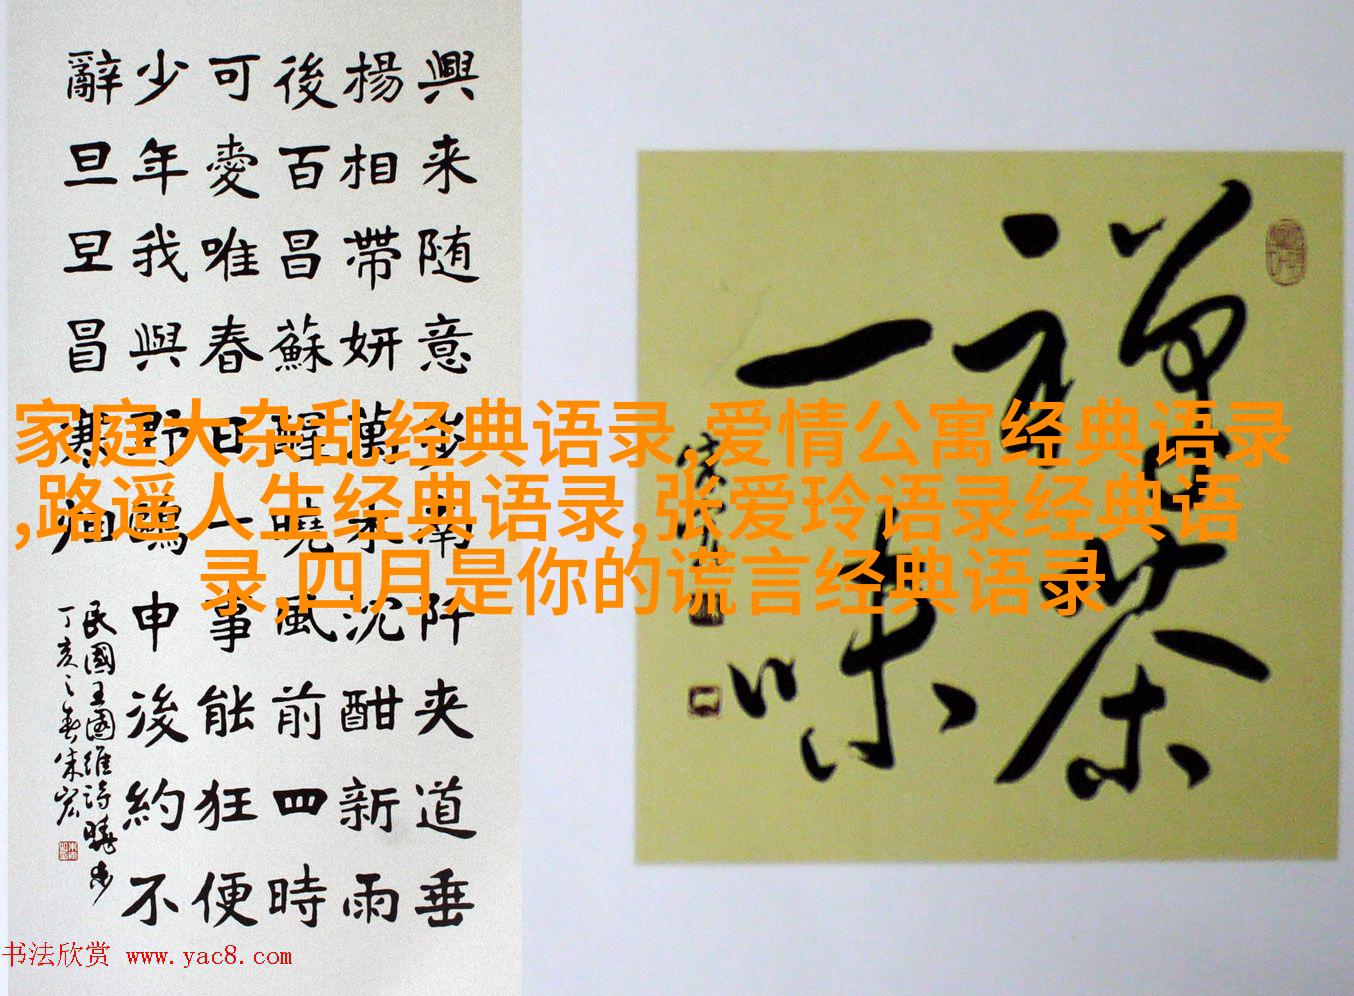 興来随意步南阡夹道垂
楊相帶妍萬木沈酣新雨
後百昌蘇醒曉風前四時
可愛唯春日一事能狂便
少年我與野鷗申後約不
辭旦旦冒寒烟
民國王國維詩曉步
丁亥之春朱宏
禪茶
一味
家庭大杂乱经典语录,爱情公寓经典语录
,路遥人生经典语录,张爱玲语录经典语
录,四月是你的谎言经典语录
书法欣赏 www.yac8.com